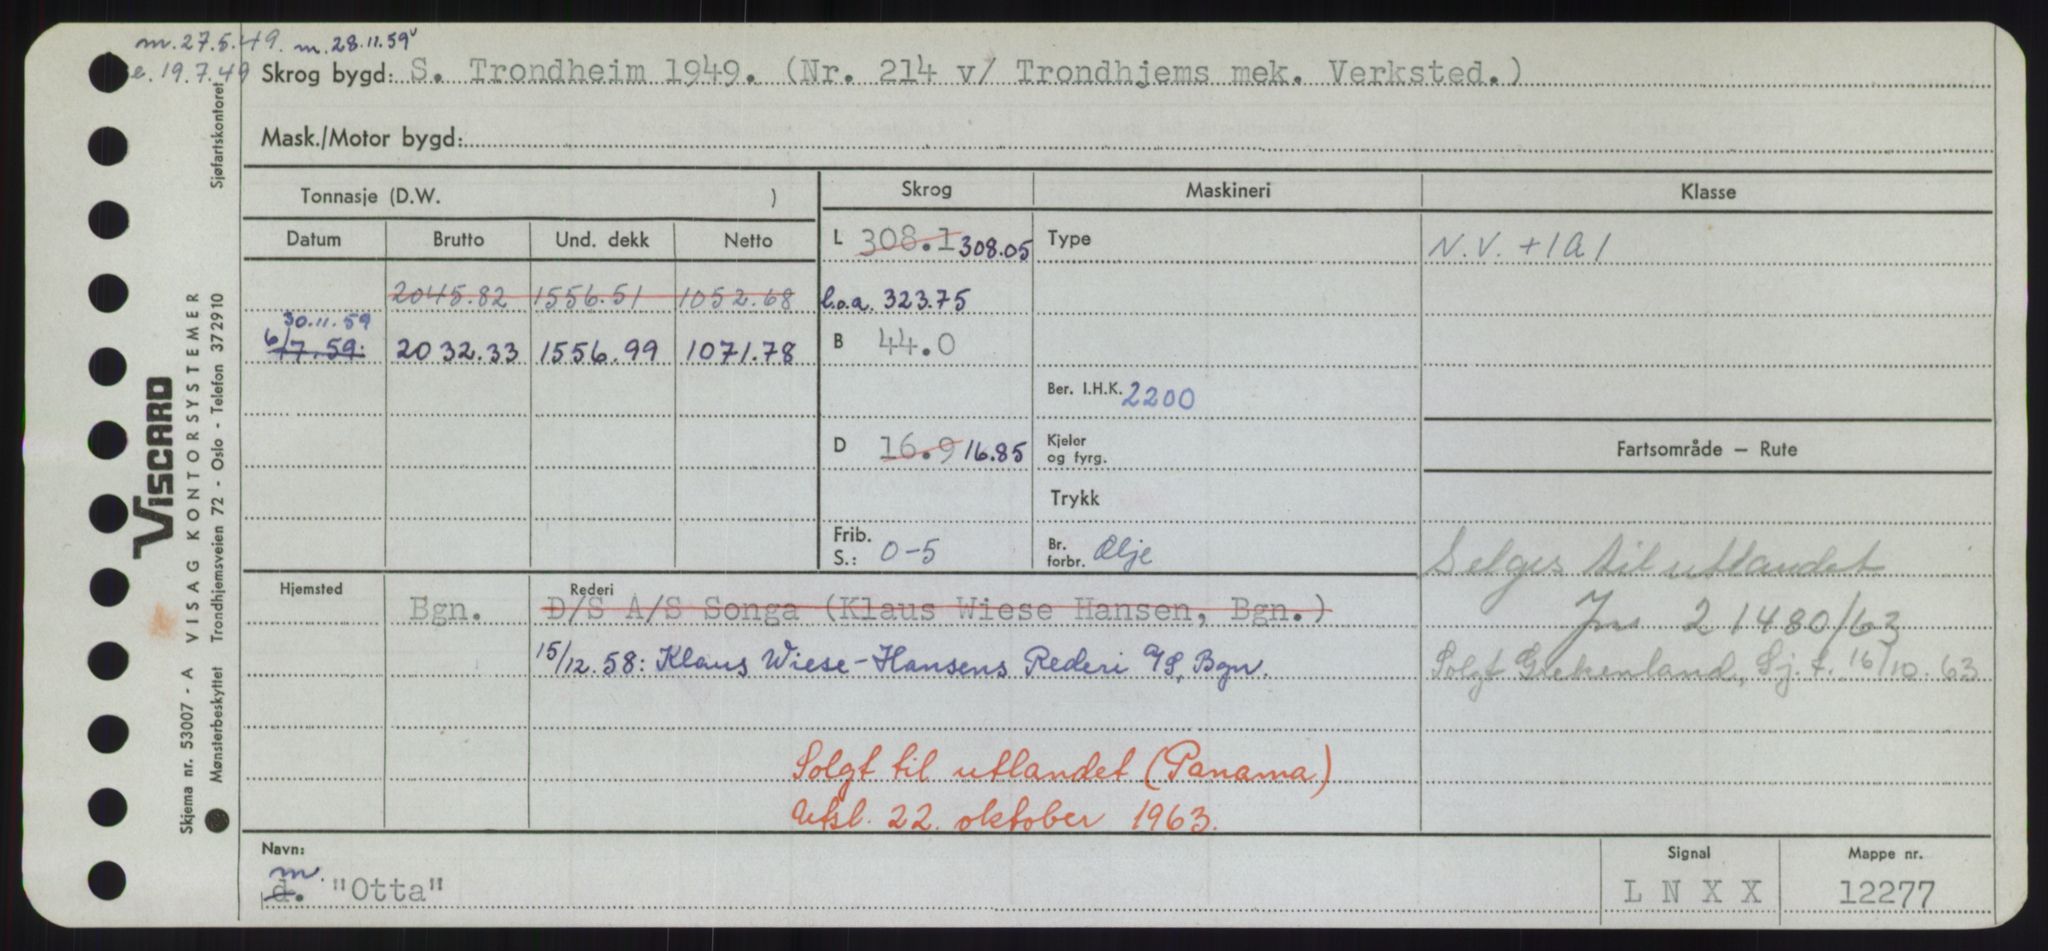 m. 27.5.49. m. 28.11.59
e. 19.7.49 Skrog bygd: S. Trondheim 1949. (Nr. 214 v/ Trondhjems mek. Verksted.)
Mask./Motor bygd:
Tonnasje (D.W. )
Skrog
Maskineri
Klasse
Datum Brutto Und. dekk Netto
L 308.1 308.05
Type
N.V. +1A1
2045.82 1556.51 1052.68
l.o.a. 323.75
30.11.59
6/7.59. 2032.33 1556.99 1071.78
B 44.0
Ber. I.H.K. 2200
D 16.9 16.85
Kjeler
og fyrg.
Fartsområde — Rute
Trykk
Frib.
S.: 0-5
Br.
forbr. Olje
Selges til utlandet
Jnr 21480/63
Solgt Grekenland, Sj. f. 16/10. 63
Hjemsted
Rederi
Bgn. D/S A/S Songa (Klaus Wiese Hansen, Bgn.)
15/12.58: Klaus Wiese-Hansens Rederi A/S, Bgn.
Solgt til utlandet (Panama)
Utsl. 22. oktober 1963.
Navn:
m.
d. "Otta"
Signal
L N X X
Mappe nr.
12277
VISCARD
VISAG KONTORSYSTEMER
Skjema nr. 53007 - A
Mønsterbeskyttet Trondhjemsveien 72 - Oslo - Telefon 372910
Sjøfartskontoret